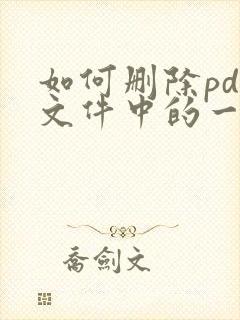 如何删除pd
文件中的一
乔剑文